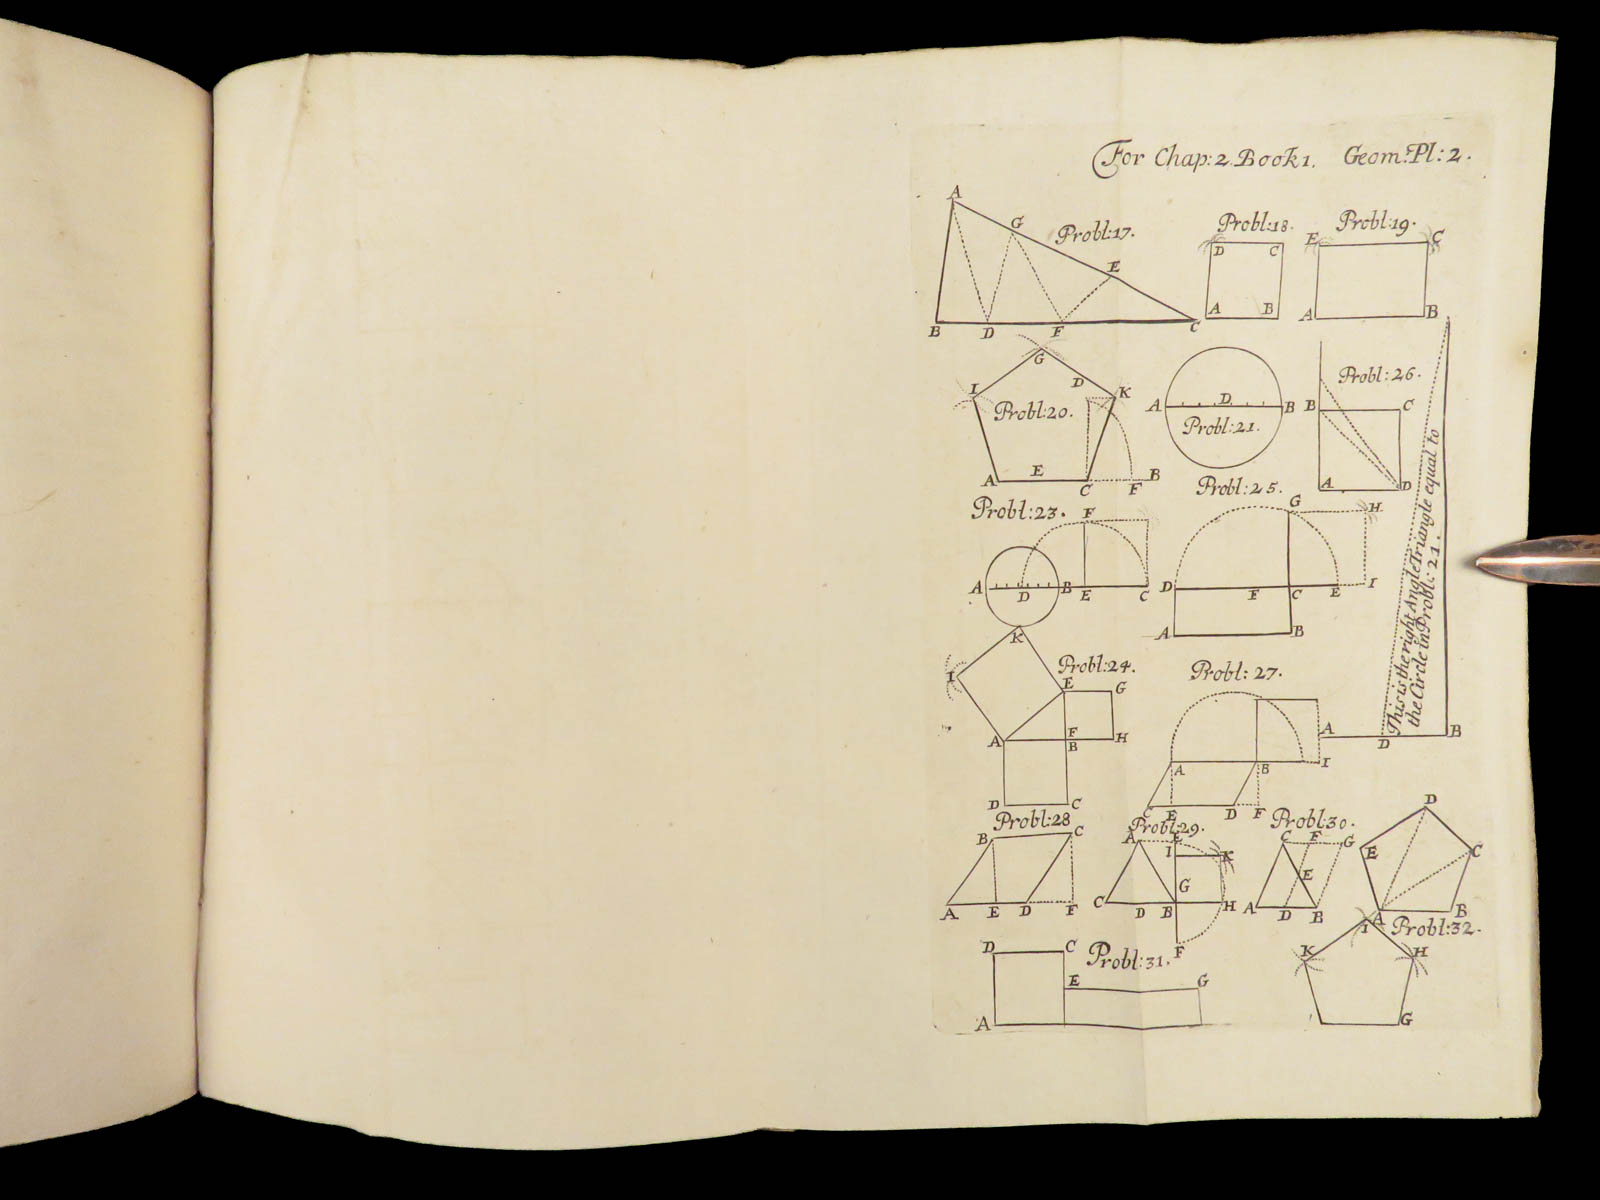 For Chap: 2. Book 1. Geom: Pl: 2.
Probl: 17.
A G E
B D F C
Probl: 18.
D C
A B
Probl: 19.
E C
A B
Probl: 20.
G
I D K
E
A C F B
Probl: 21.
A D B
Probl: 26.
B C
A D
This is the right Angle Triangle equal to
the Circle in Probl: 21.
A D B
Probl: 23.
F
A D B E C
Probl: 25.
G H
D F C E I
A B
Probl: 24.
K
I E G
A F B H
D C
Probl: 27.
A B I
C E D F
Probl: 28
B C
A E D F
Probl: 29.
A E
I K
G
C D B H
F
Probl: 30.
C F G
E
A D B
Probl: 32.
D
E C
A B
I
K H
G
Probl: 31.
D C
E G
A